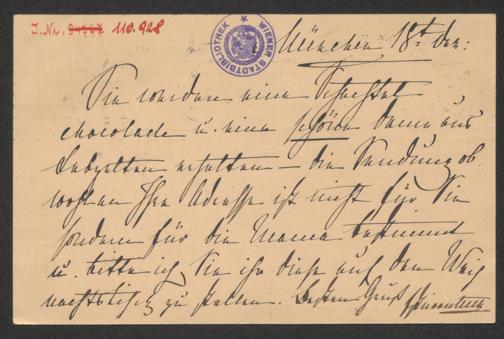 J.Nr. 110.928
WIENER STADTBIBLIOTHEK
München 18t Dez:
Sie werden eine Schachtel
chocolade u. eine schöne Dame aus
erhalten – die Sendung ob-
wohl an Ihre Adresse ist nicht für Sie
sondern für die Mama bestimmt
u. bitte ich Sie ihr diese auf den Weih
nachtstisch zu stellen. Besten Gruß